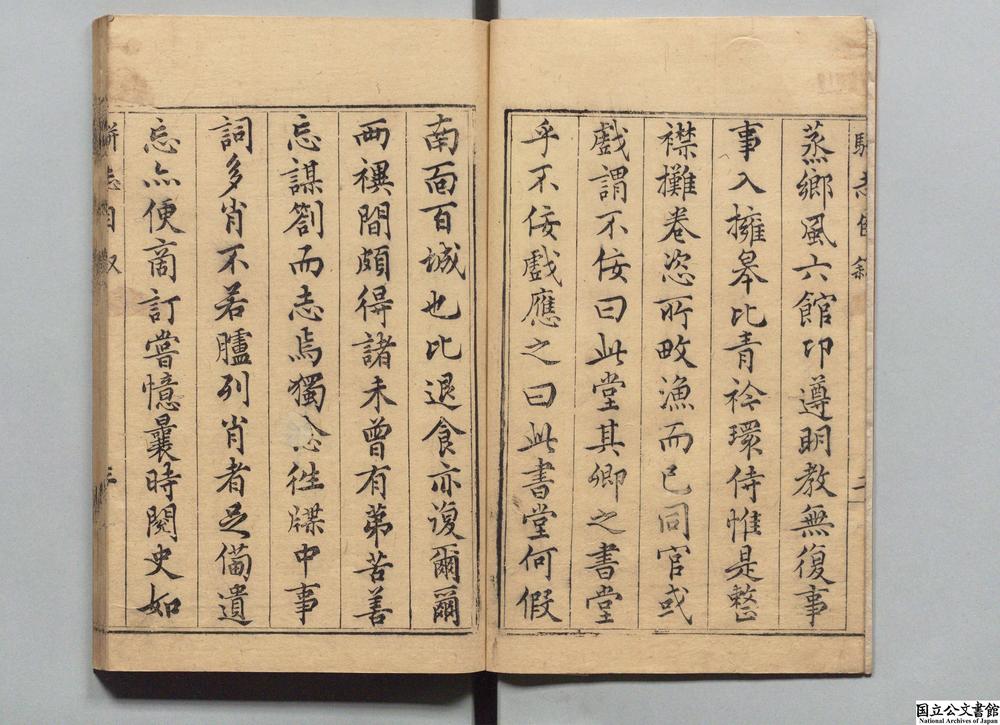 蒸鄉風六館卬遵明教無復事
事入擁皋比青衿環侍惟是整
襟攤卷恣所畋漁而已同官或
戲謂不佞曰此堂其卿之書堂
乎不佞戲應之曰此書堂何假
南面百城也比退食亦復爾爾
兩禩間頗得諸未曾有苐苦善
忘謀劄而志焉獨念徃牒中事
詞多肖不若臚列肖者足備遺
忘亦便商訂嘗憶曩時閱史如
駢志自叙
国立公文書館
National Archives of Japan